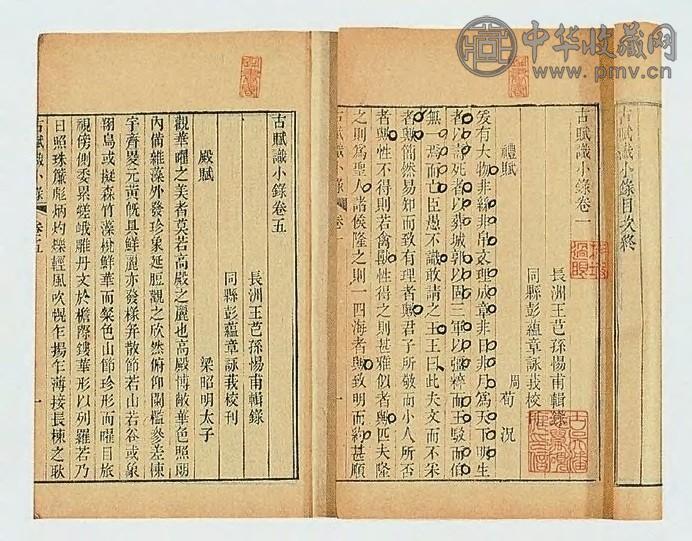 中华收藏网
www.pmv.cn
古賦識小錄目次終
古賦識小錄卷一
長洲王芑孫惕甫輯錄
同縣彭蘊章詠莪校
禮賦 周荀況
爰有大物非絲非帛文理成章非日非月為天下明生
者以壽死者以葬城郭以固三軍以強粹而王駁而伯
無一焉而亡臣愚不識敢請之王王曰此夫文而不采
者與簡然易知而致有理者與君子所敬而小人所否
者與性不得則若禽獸性得之則甚雅似者與匹夫隆
之則為聖人諸侯隆之則一四海者與致明而約甚順
古賦識小錄 卷一
古賦識小錄卷五
長洲王芑孫惕甫輯錄
同縣彭蘊章詠莪校刊
殿賦 梁昭明太子
觀華曜之美者莫若高殿之麗也高殿博敞華色照朗
內備雜藻外發珍象延脰觀之欣然俯仰闌檻參差棟
宇齊晏元黃既具鮮麗亦發樣并散節若山若谷或象
翔鳥或擬森竹藻梲鮮華而粲色山節珍形而曜目旅
視傍側委累嵯峨雕丹文於檐際鏤華形以列羅若乃
日照珠簾彪炳灼爍輕風吹幌乍揚乍薄接長棟之耿
古賦識小錄 卷五 一